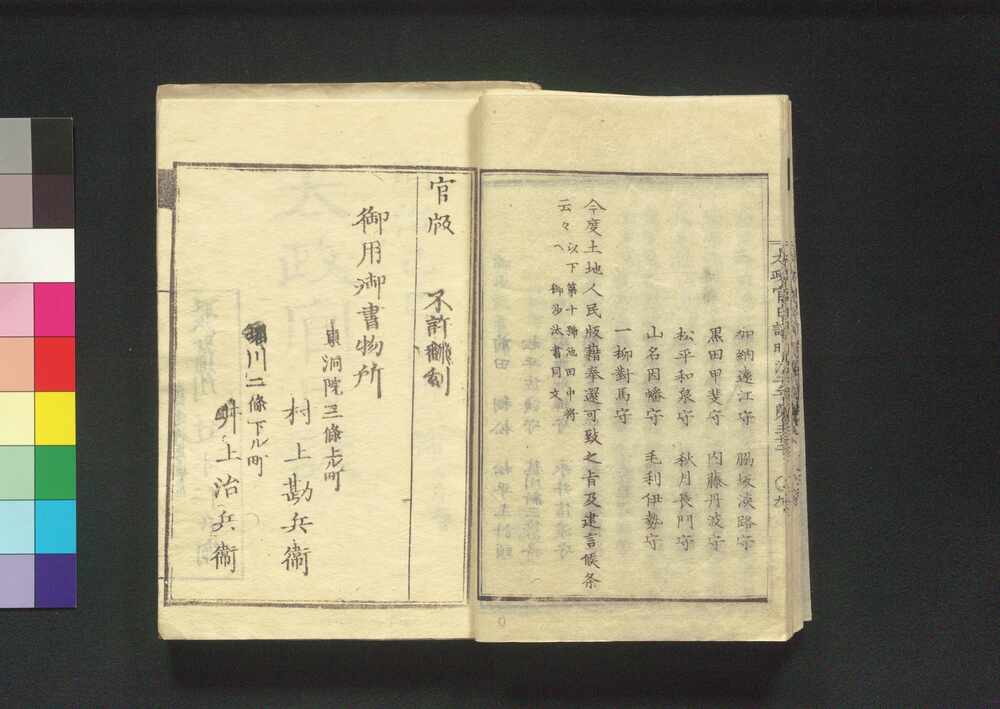 加納遠江守　脇坂淡路守
黒田甲斐守　内藤丹波守
松平和泉守　秋月長門守
山名因幡守　毛利伊勢守
一柳對馬守
今度土地人民版藉奉還可致之旨及建言候条
云々以下第十號池田中将
へ御沙汰書同文
官版　不許翻刻
御用御書物所
東洞院三條上ル町
村上勘兵衛
堀川二條下ル町
井上治兵衛